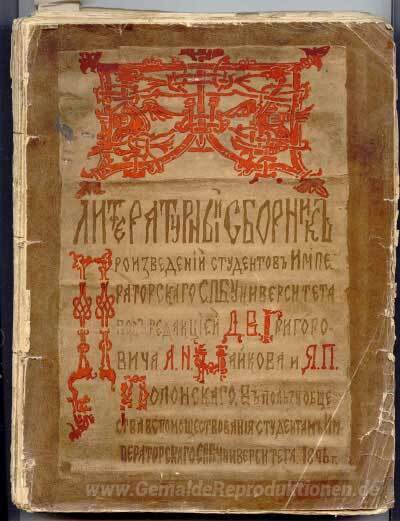 ЛИТЕРАТУРНЫЙ СБОРНИКЪ
ПРОИЗВЕДЕНІЙ СТУДЕНТОВЪ ИМПЕ
РАТОРСКАГО СПБ. УНИВЕРСИТЕТА
ПОДЪ РЕДАКЦІЕЙ Д.В. ГРИГОРО
ВИЧА А.Н. МАЙКОВА И Я.П.
ПОЛОНСКАГО. ВЪ ПОЛЬЗУ ОБЩЕ
СТВА ВСПОМОЩЕСТВОВАНІЯ СТУДЕНТАМЪ ИМ
ПЕРАТОРСКАГО СПБ. УНИВЕРСИТЕТА. 1896 г.
www.GemaldeReproduktionen.de